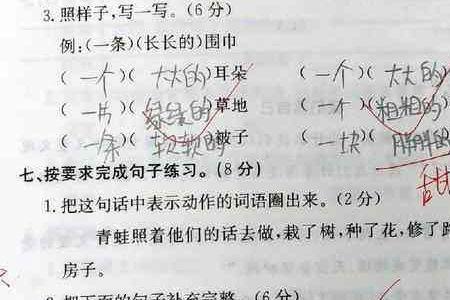 3.照样子,写一写。(6分)
例:(一条)(长长的)围巾
(一个)(大大的)耳朵 (一个)(大大的)
(一片)(绿绿的)草地 (一个)(粗粗的)
(一条)(软软的)被子 (一块)(胖胖的)
甜
七、按要求完成句子练习。(8分)
1.把这句话中表示动作的词语圈出来。(2分)
青蛙照着他们的话去做,栽了树,种了花,修了路
房子。
2.把下面的句子补充完整。(6分)